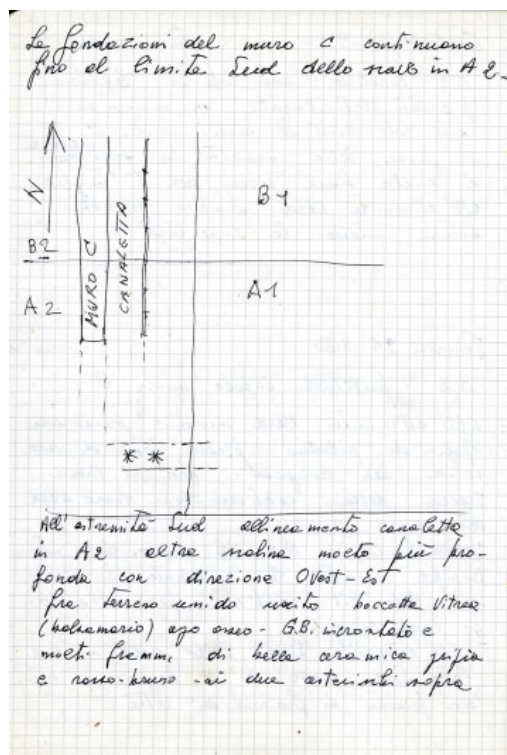 Le fondazioni del muro C continuano
fino al limite Sud dello scavo in A2-
N
B1
B2
MURO C
CANALETTA
A2
A1
* *
All'estremità Sud allineamento canaletta
in A2 altra canalina molto più pro-
fonda con direzione Ovest-Est
fra terreno umido uscito boccetta vitrea
(balsamario) ago osseo - G.B. incrostato e
molti framm. di bella ceramica grigia
e rosso-bruno - ai due asterischi sopra